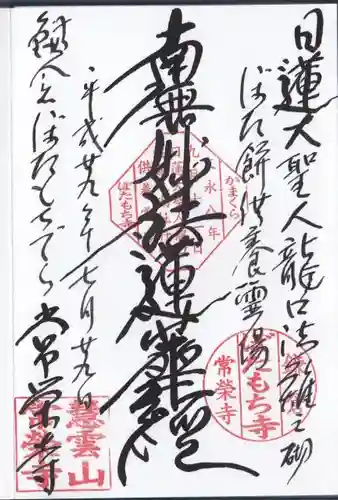 日蓮大聖人龍口法難之砌
ぼた餅供養霊場
南無妙法蓮華経
平成廿九年七月廿九日
鎌倉 ぼたもちでら 常栄寺
かまくら
ぼたもち寺
常榮寺
慧雲山
常榮寺